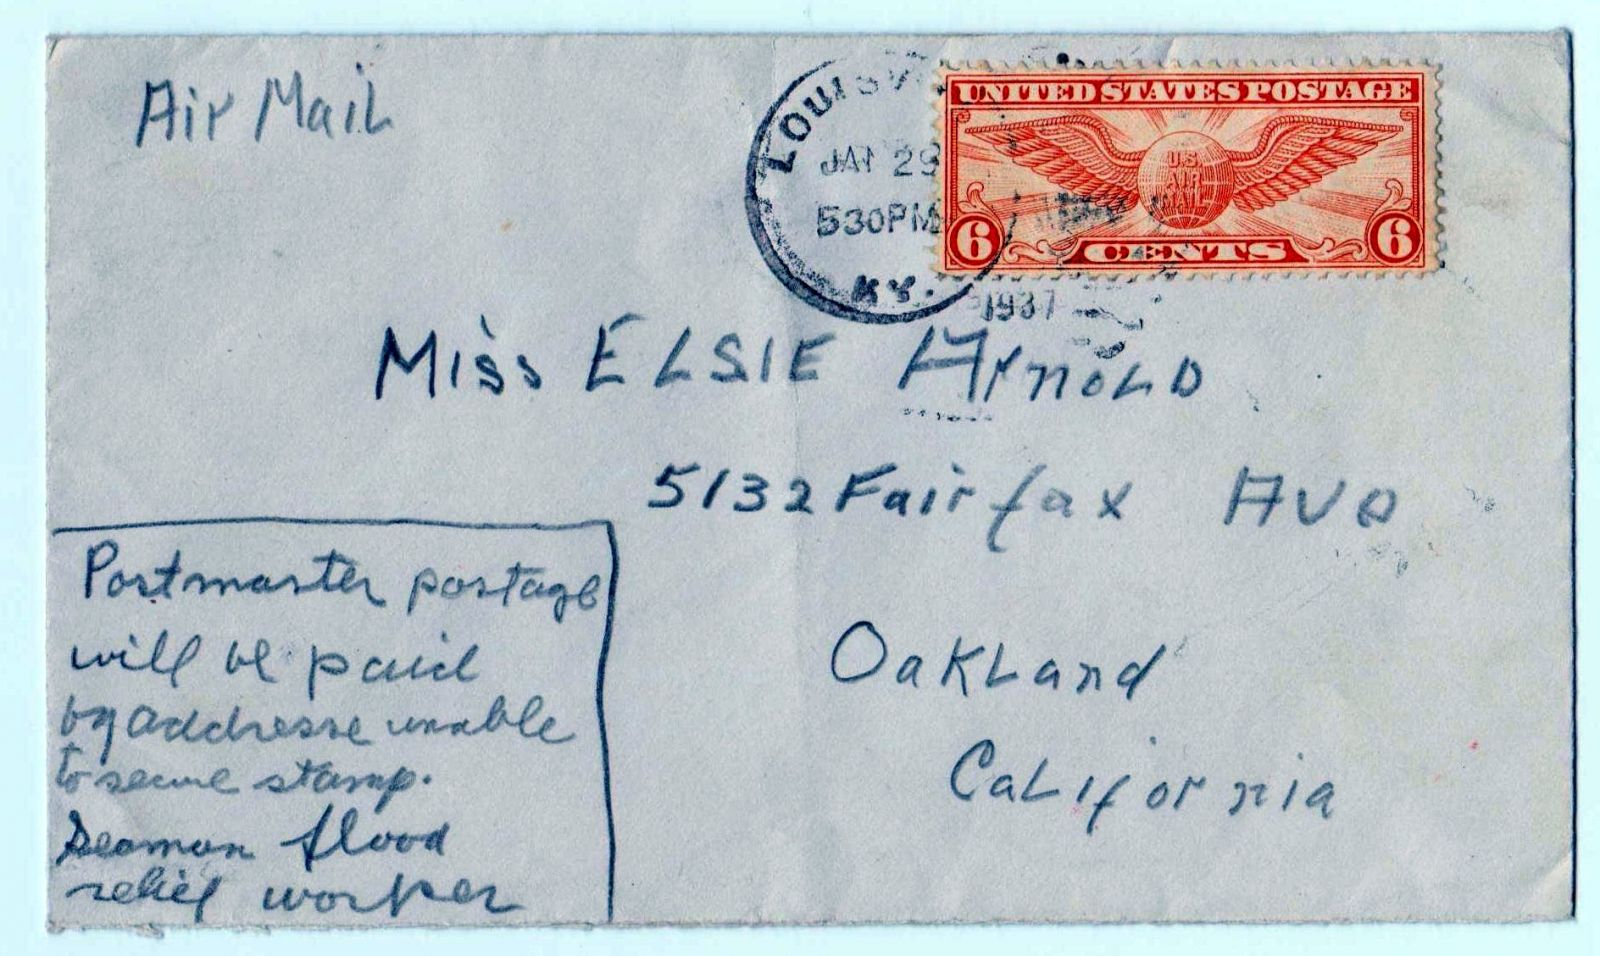 Air Mail
LOUISV
JAN 29
530PM
KY.
1937
UNITED STATES POSTAGE
U.S.
AIR
MAIL
6 CENTS 6
Miss ELSIE Arnold
5132 Fairfax AVe
Oakland
California
Postmaster postage
will be paid
by addresse unable
to secure stamp.
Seaman flood
relief worker